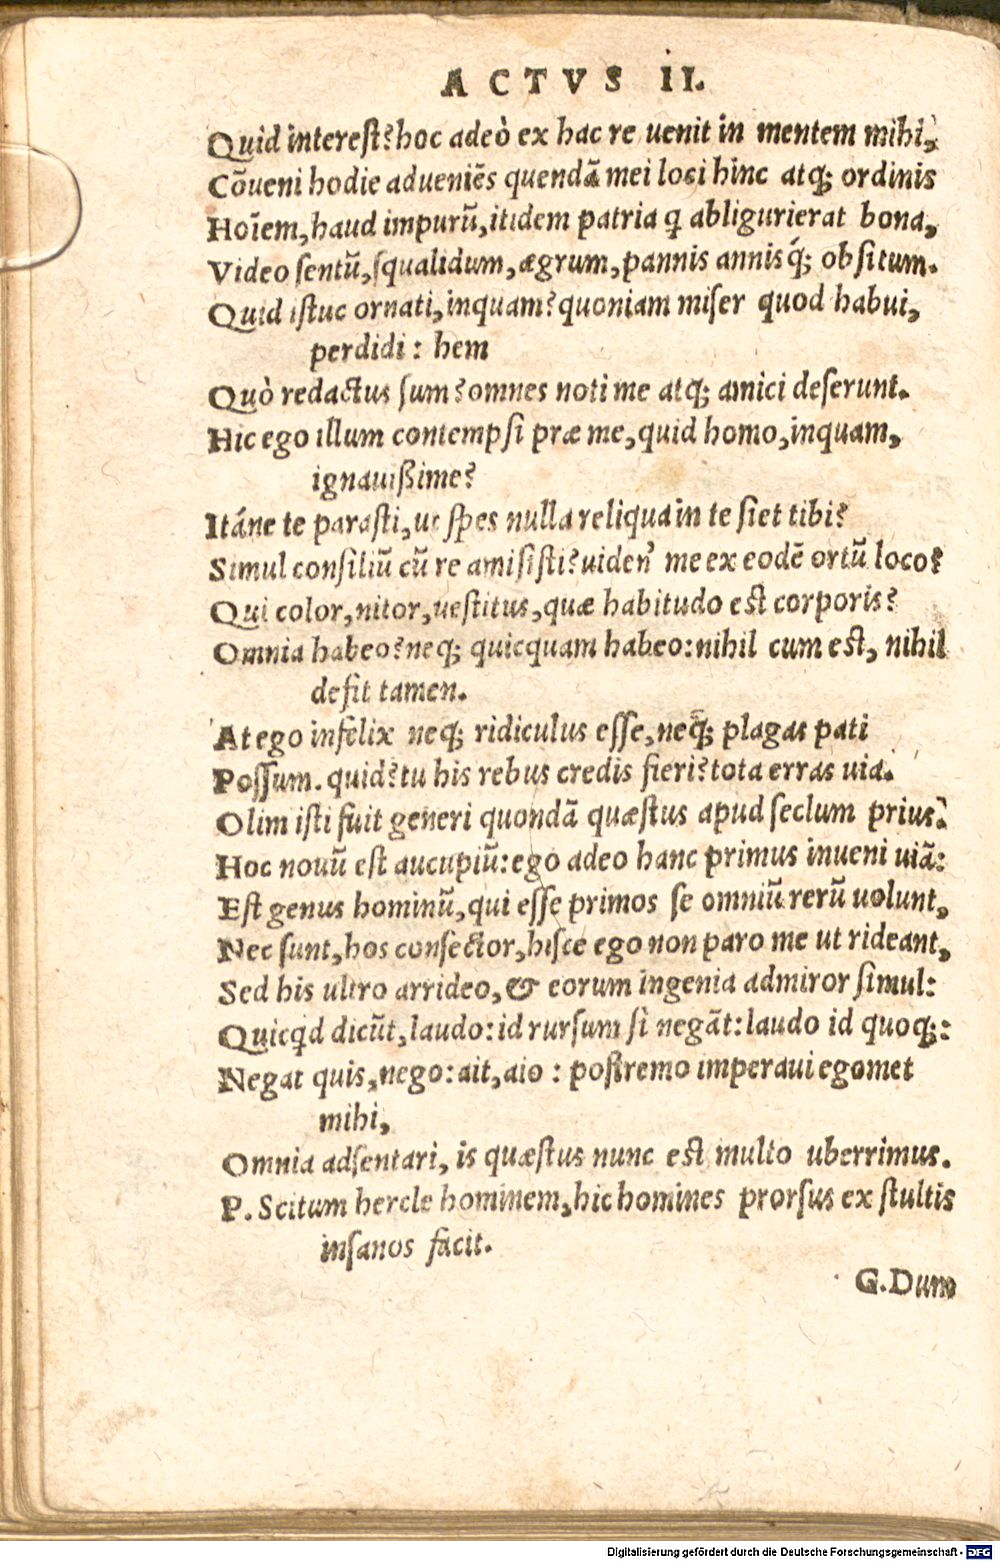 ACTVS II.
Quid interest? hoc adeò ex hac re uenit in mentem mihi,
Cōueni hodie adueniēs quendā mei loci hinc atq; ordinis
Hoīem, haud impurū, itidem patria q abligurierat bona,
Video sentū, squalidum, ægrum, pannis annisq́; obsitum.
Quid istuc ornati, inquam? quoniam miser quod habui,
perdidi: hem
Quò redactus sum? omnes noti me atq; amici deserunt.
Hic ego illum contempsi præ me, quid homo, inquam,
ignauißime?
Itáne te parasti, ut spes nulla reliqua in te siet tibi?
Simul consiliū cū re amisisti? uiden' me ex eodē ortū loco?
Qui color, nitor, uestitus, quæ habitudo est corporis?
Omnia habeo? neq; quicquam habeo: nihil cum est, nihil
defit tamen.
At ego infelix neq; ridiculus esse, neq; plagas pati
Possum. quid? tu his rebus credis fieri? tota erras uia.
Olim isti fuit generi quondā quæstus apud seclum prius:
Hoc nouū est aucupiū: ego adeo hanc primus inueni uiā:
Est genus hominū, qui esse primos se omniū rerū uolunt,
Nec sunt, hos consector, hisce ego non paro me ut rideant,
Sed his ultro arrideo, & eorum ingenia admiror simul:
Quicqd dicūt, laudo: id rursum si negāt: laudo id quoq;:
Negat quis, nego: ait, aio: postremo imperaui egomet
mihi,
Omnia adsentari, is quæstus nunc est multo uberrimus.
P. Scitum hercle hominem, hic homines prorsus ex stultis
insanos facit.
G. Dum
Digitalisierung gefördert durch die Deutsche Forschungsgemeinschaft - DFG